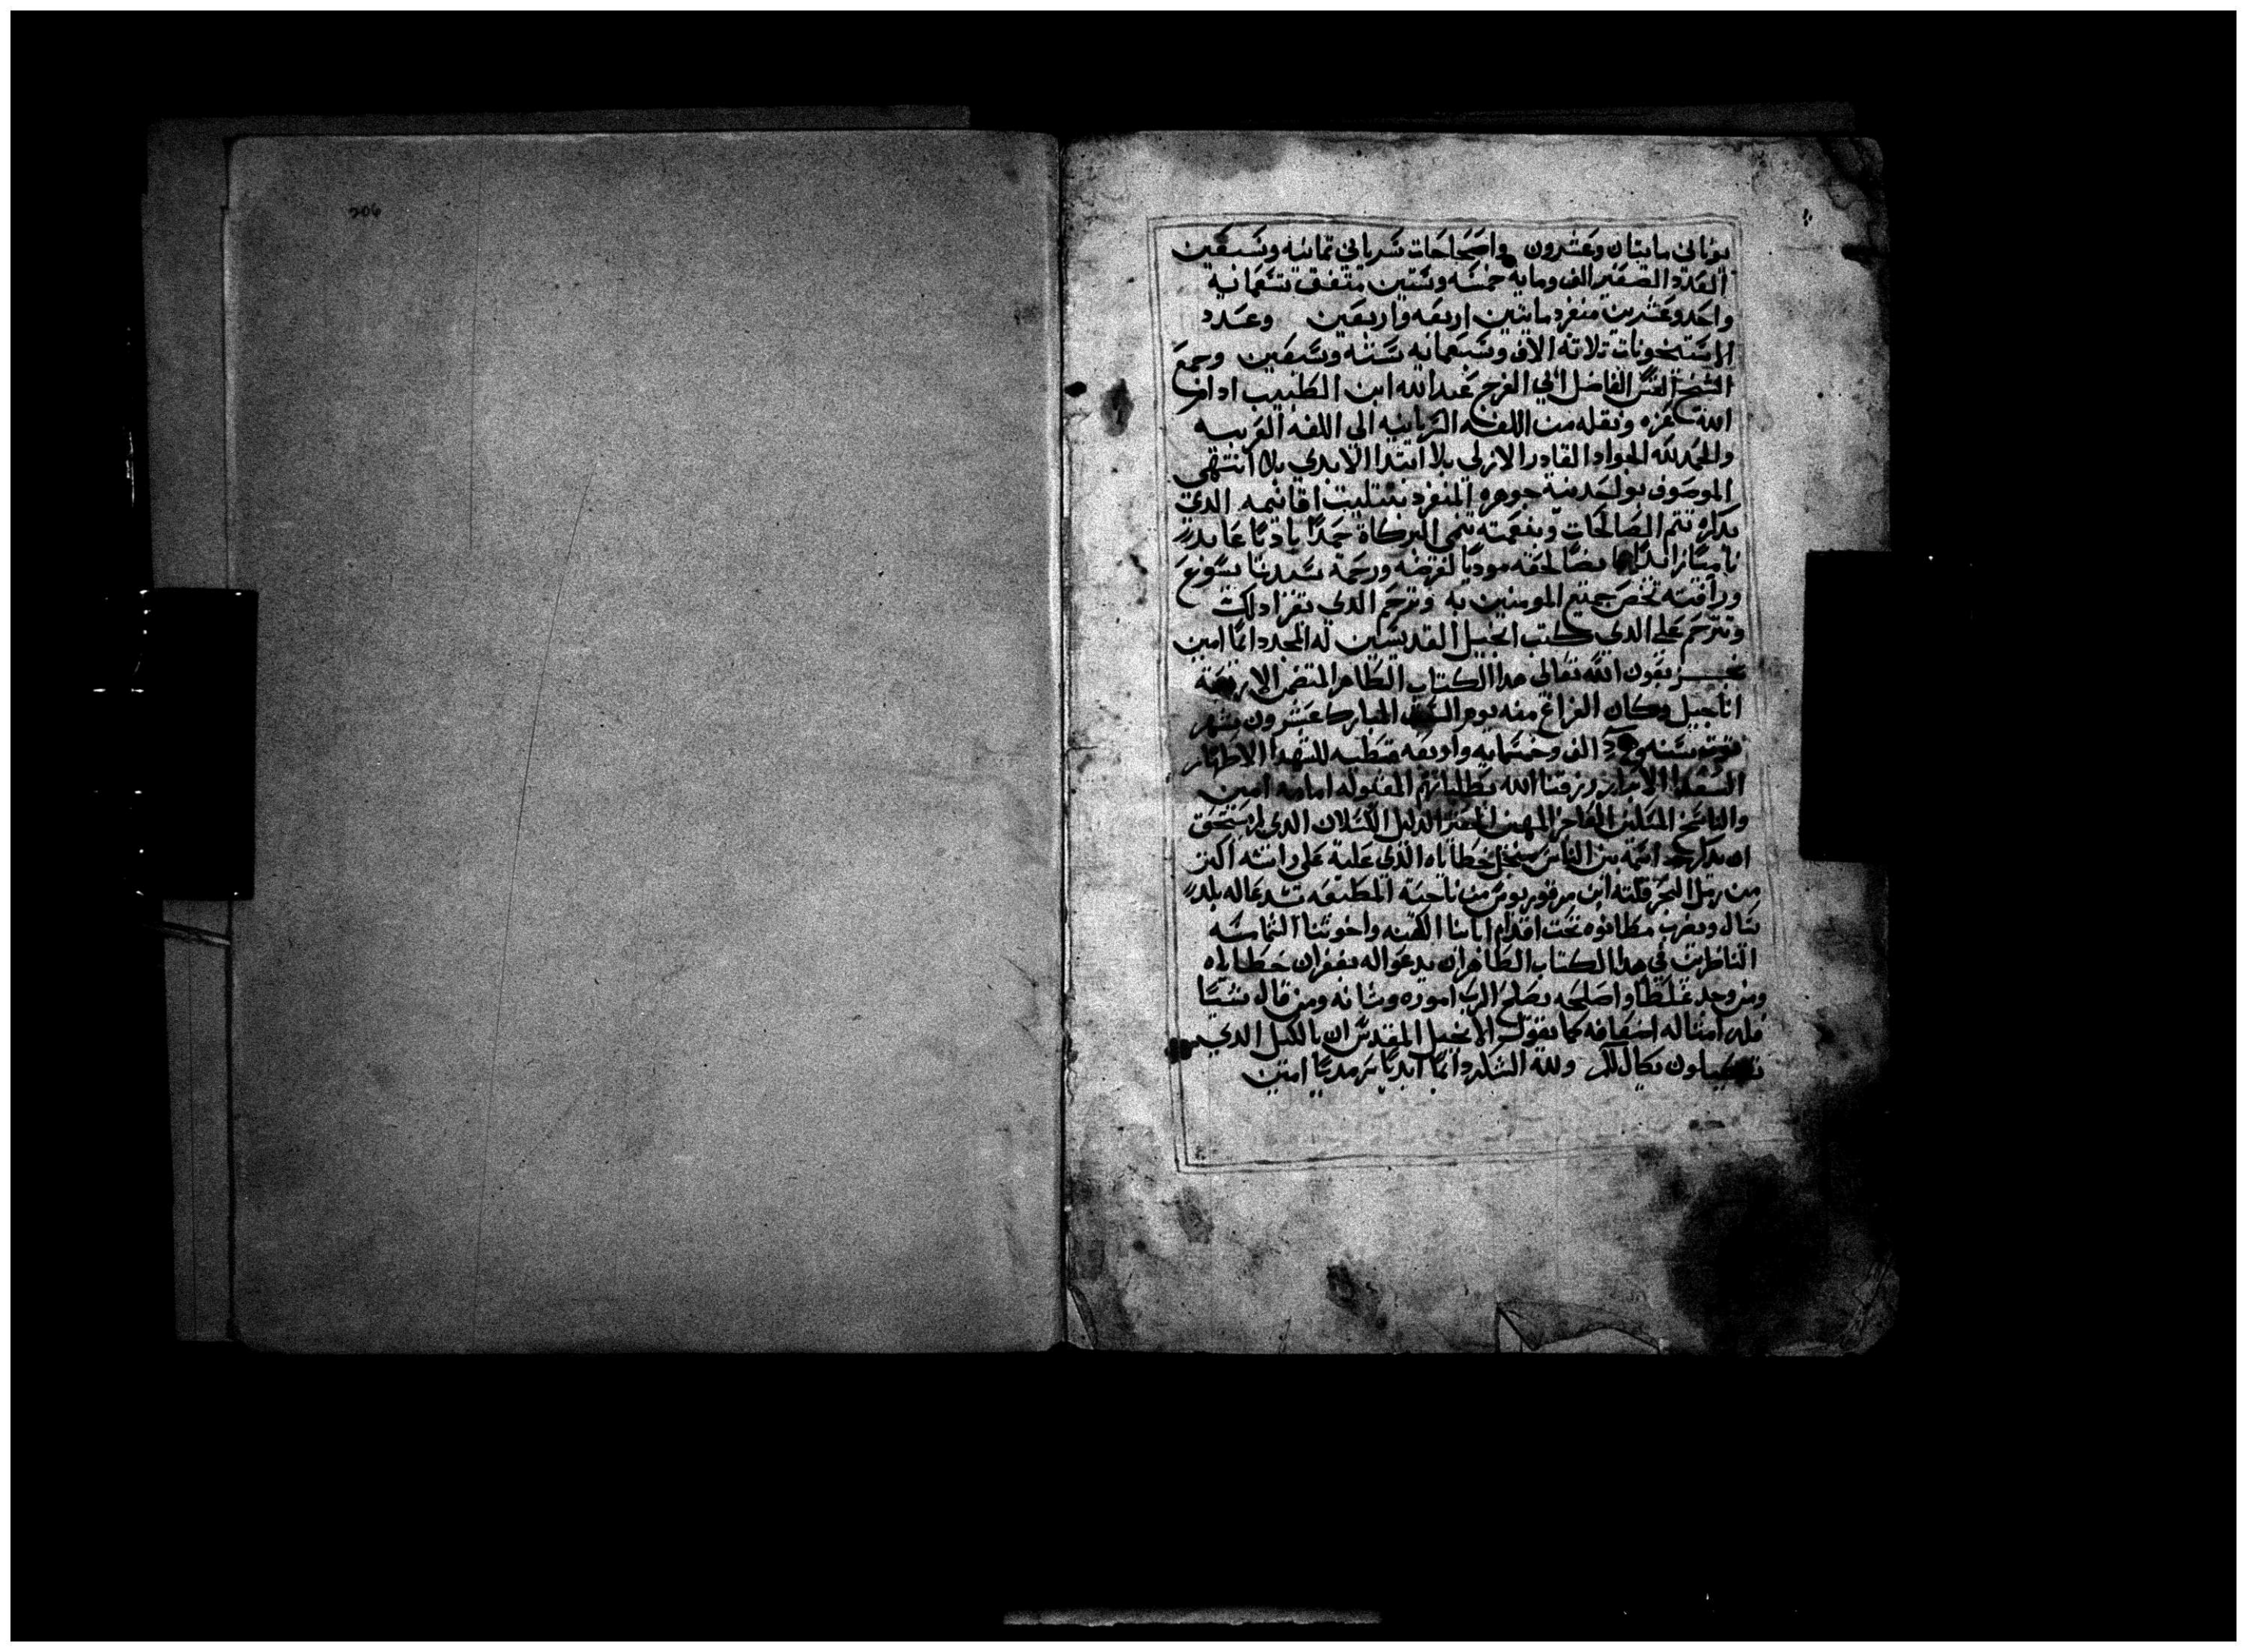 يوناني مايتان وعشرون واصحاحات سرياني تمانيه وتسعين
العدد الصغير الف ومايه خمسه وستين متفق تسعمايه
واحد وعشرين منفرد مايتين اربعه واربعين وعدد
الاستيخونات تلاته الاف وسبعمايه سته وسبعين وجمع
الشيخ القس الفاضل ابي الفرج عبدالله ابن الطبيب ادام
الله عزه ونقله من اللغه السريانيه الي اللغه العربيه
والحمد لله الجواد القادر الازلي بلا ابتدا الابدي بلا انتهي
الموصوف بواحدية جوهره المنفرد بتتليت اقانيمه الدي
بدكره تتم الصالحات وبنعمته تنمي البركاة حمدًا
لفرضه ورحمة سيدنا يسوع
ورافته تخص جميع المومنين به وترحم الدي يقرا دلك
وتترحم علي الدي كتب انجيل القديسين له المجد دايمًا امين
بعون الله تعالي هدا الكتاب الطاهر المتضمن الاربعة
اناجيل وكان الفراغ منه يوم المبارك عشرون شهر
سنه الف وخمسمايه واربعه قبطيه للشهدا الاطهار
السعدا الابرار رزقنا الله بطلباتهم المقبوله امامه امين
والناسخ المسكين الفاجر المهين الحقير الدليل الكسلان الدي لا يستحق
ان يدكر اسمه بين الناس من اجل خطاياه الذي علية علي راسه اكتر
من رمل البحر قلته ابن مرقوريوس من ناحية
يسال ويضرب مطانوه تحت اقدام ابائنا الكهنه واخوتنا الشماسه
الناظرين في هدا الكتاب الطاهر ان يدعوا له بغفران خطاياه
ومن وجد غلطا واصلحه يصلح الرب اموره وشانه ومن قال شيئًا
فله امتاله اضعافه كما يقول الانجيل المقدس ان بالكيل الدي
تكيلون يكال لكم ولله الشكر دايمًا ابديًا سرمديًا امين
206